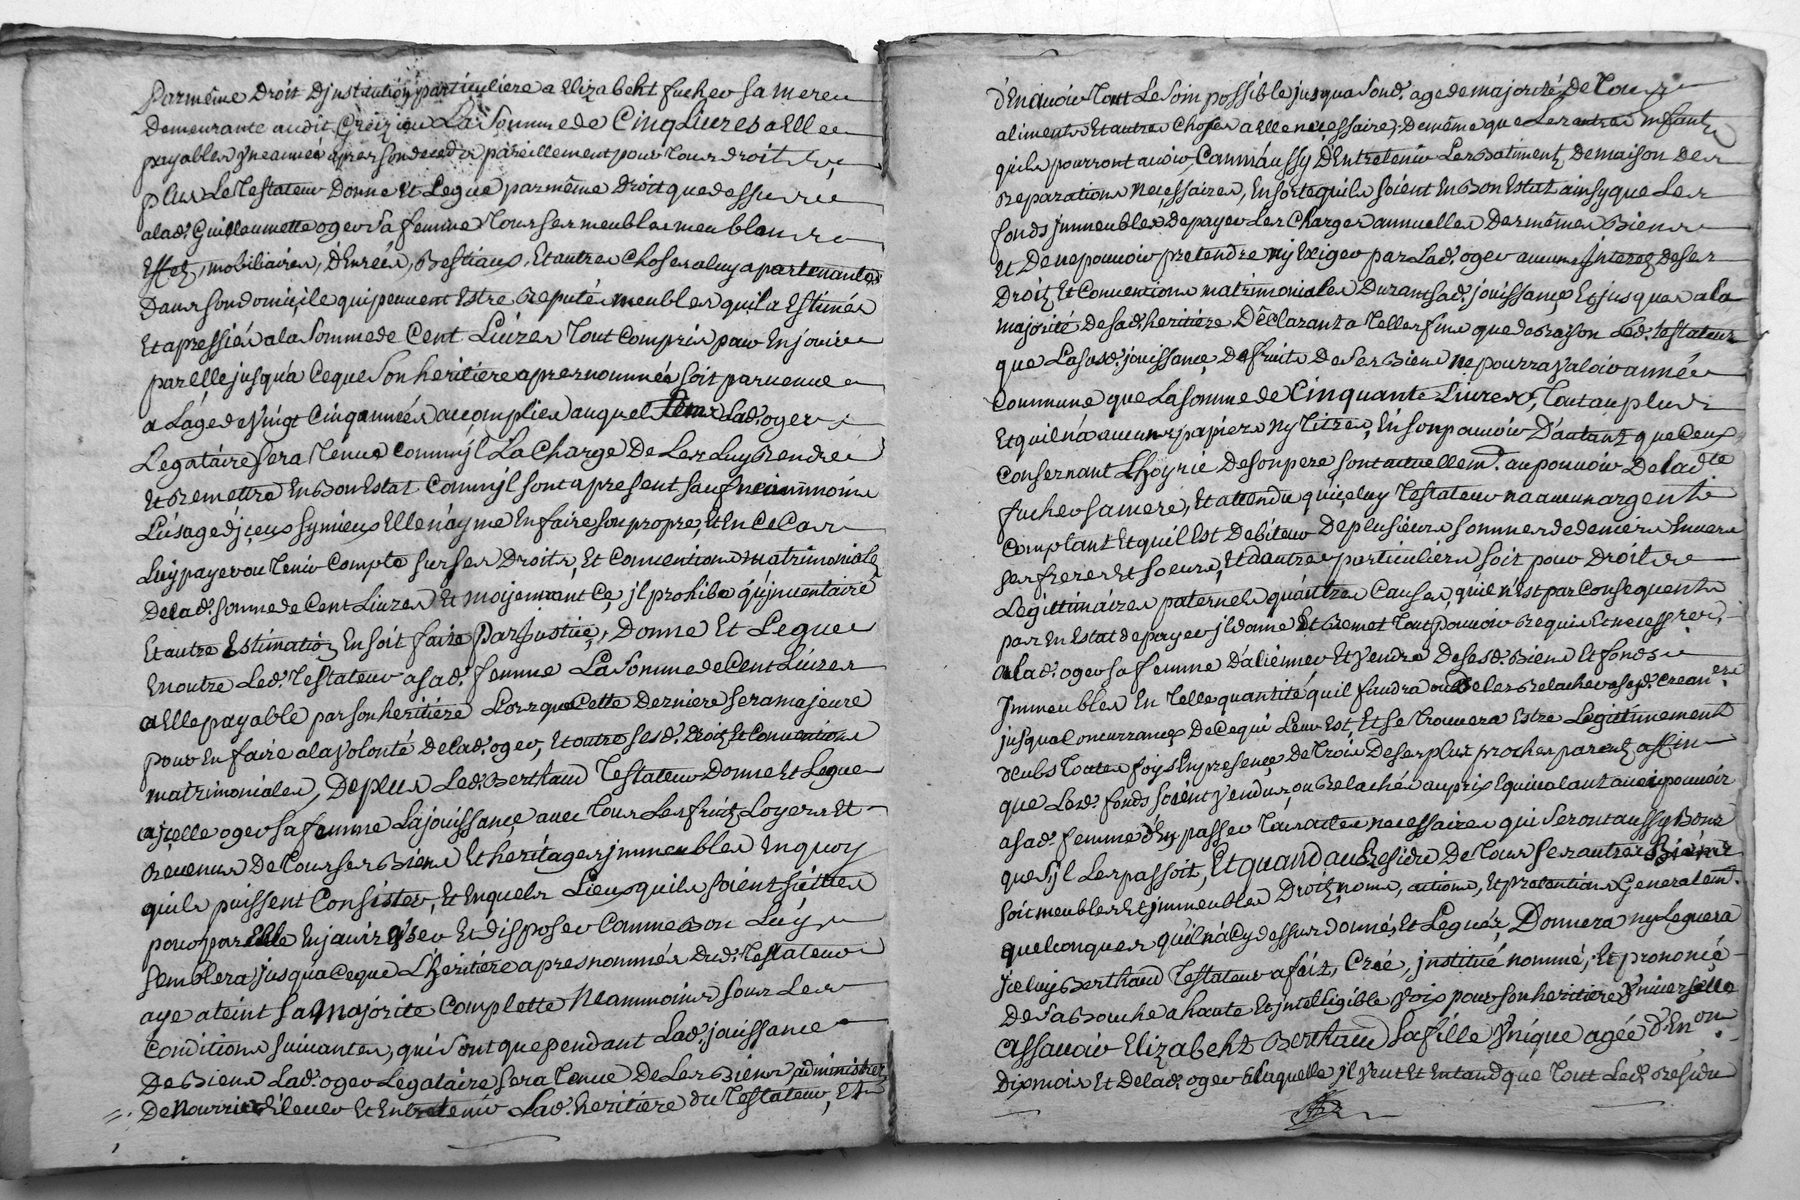 Par même Droit D'jnstitution particuliere a Elizabeht fucher sa mere
Demeurante audit Greizieu La Somme de Cinq Livres a Elle
payables Vne année apres son deced & pareillement pour tous droits,
plus Le Testateur Donne et Legue par même Droit que dessus
a lad. Guilleaumette oger Sa femme Tous ses meubles meublans
Effetz, mobiliaires, D'enrées, Bestiaux, Et autres choses a luy apartenantes
Dans son domicile qui peuvent Estre Reputés meubles qu'il a Estimés
Et apressiés a la Somme de Cent Livres Tout Compris pour En jouir
par elle jusqu'a Ce que Son heritiere apres nommée soit parvenue
a L'age de Vingt Cinq années accomplies auquel Tems Lad. oger
Legataire Sera Tenue Comm'jl La Charge De Les Luy Rendre
Et Remettre En Bon Estat Comm'jl sont a present sauf neammoins
L'usage d'jceux sy mieux Elle n'ayme En faire son propre, & En Ce Cas
Luy payer ou Tenir Compte sur ses Droits, Et Conventions matrimoniale
De lad. somme de Cent Livres Et moijennant Ce, jl prohibe qu'jnventaire
Et autre Estimation En soit faite Par Justice, Donne Et Legue
En outre Led. Testateur a sad. femme La Somme de Cent Livres
a Elle payable par son heritiere Lorsque Cette Derniere sera majeure
pour En faire a la Volonté De lad. oger, Et outre sesd. Droitz Et Conventions
matrimoniales, De plus Led. Berthaud Testateur Donne Et Legue
a jcelle oger sa femme La jouissance avec Tous Les fruitz Loyers Et
Revenus De Tous ses Biens Et heritages jmmeubles En quoy
qu'ils puissent Consister, Et En quels Lieux qu'ils soient scittués
pour par Elle En jouir user Et disposer Comme Bon Luy
semblera jusqu'a Ce que L'heritiere apres nommée Dud. Testateur
aye ateint sa majorite Complette Neammoins sous Les
Conditions suivantes, qui sont que pendant Lad. jouissance
De Biens Lad. oger Legataire sera Tenue De Les Biens administrer
De nourrir Elever Et Entretenir Lad. heritiere du Testateur, Et
d'En avoir Tout Le Soin possible jusqu'a Sond. age de majorité De Tous
aliments Et autres Choses a Elle necessaires, De même que Les autres Enfants
qu'ils pourront avoir, Comm'aussy D'Entretenir Les Batiments De maison Des
Reparations necessaires, En sorte qu'ils soient En Bon Estat ainsy que Les
fonds jmmeubles, De payer Les Charges annuelles Des mêmes Biens
Et De ne pouvoir pretendre ny Exiger par Lad. oger aucuns Interetz de ses
Droitz Et Conventions matrimoniales Durant sad. jouissance Et jusques a la
majorité De sad. heritiere Déclarant a Telles fins que de Raison Led. Testateur
que La susd. jouissance De fruits De ses Biens Ne pourra Valoir année
Commune que La somme de Cinquante Livres, Tout au plus
Et qu'il n'a aucuns papiers ny Titres, En son pouvoir D'autant que Ceux
Consernant L'hoyrie De son pere sont actuellem.t au pouvoir De lad.te
fucher sa mere, Et attendu qu'içeluy Testateur na aucun argent
Comptant Et qu'il Est Debiteur De plusieurs sommes de deniers Envers
ses freres Et soeurs, Et d'autres particuliers soit pour Droits
Legittimaires paternels qu'autres Causes, qu'il n'Est par Consequent
pas En Estat de payer jl donne Et Remet Tout pouvoir Requis Et necess.re,
a lad. oger sa femme D'alienner Et Vendre De sesd. Biens Et fonds
Jmmeubles En Telle quantité qu'il faudra ou De les Relacher a sesd. Crean.ers
jusqu'a Concurrance De Ce qui Leur Est, Et se Trouvera Estre Legittimement
deubs Toutes foys En presence De Trois De ses plus proches parents affin
que Lesd. fonds soient Vendus, ou Relachés au prix Equivalant avec pouvoir
a sad. femme d'En passer Tous actes necessaires qui seront aussy Bons
que s'jl Les passoit, Et quand au Residu De Tous ses autres Biens
soit meubles Et jmmeubles Droitz, noms, actions, Et pretentions Generalem.t
quelconques qu'il n'a Cy dessus donné, Et Legués, Donnera ny Leguera
jceluy Berthaud Testateur a fait, Créé, jnstitué nommé, Et prononcé
De sa Bouche a haute Et jntelligible Voix pour son heritiere Vniverselle
assavoir Elizabeht Berthaud Sa fille Vnique agée d'En.on
Dix mois Et De lad. oger a laquelle jl Veut Et Entand que Tout Led. Residu